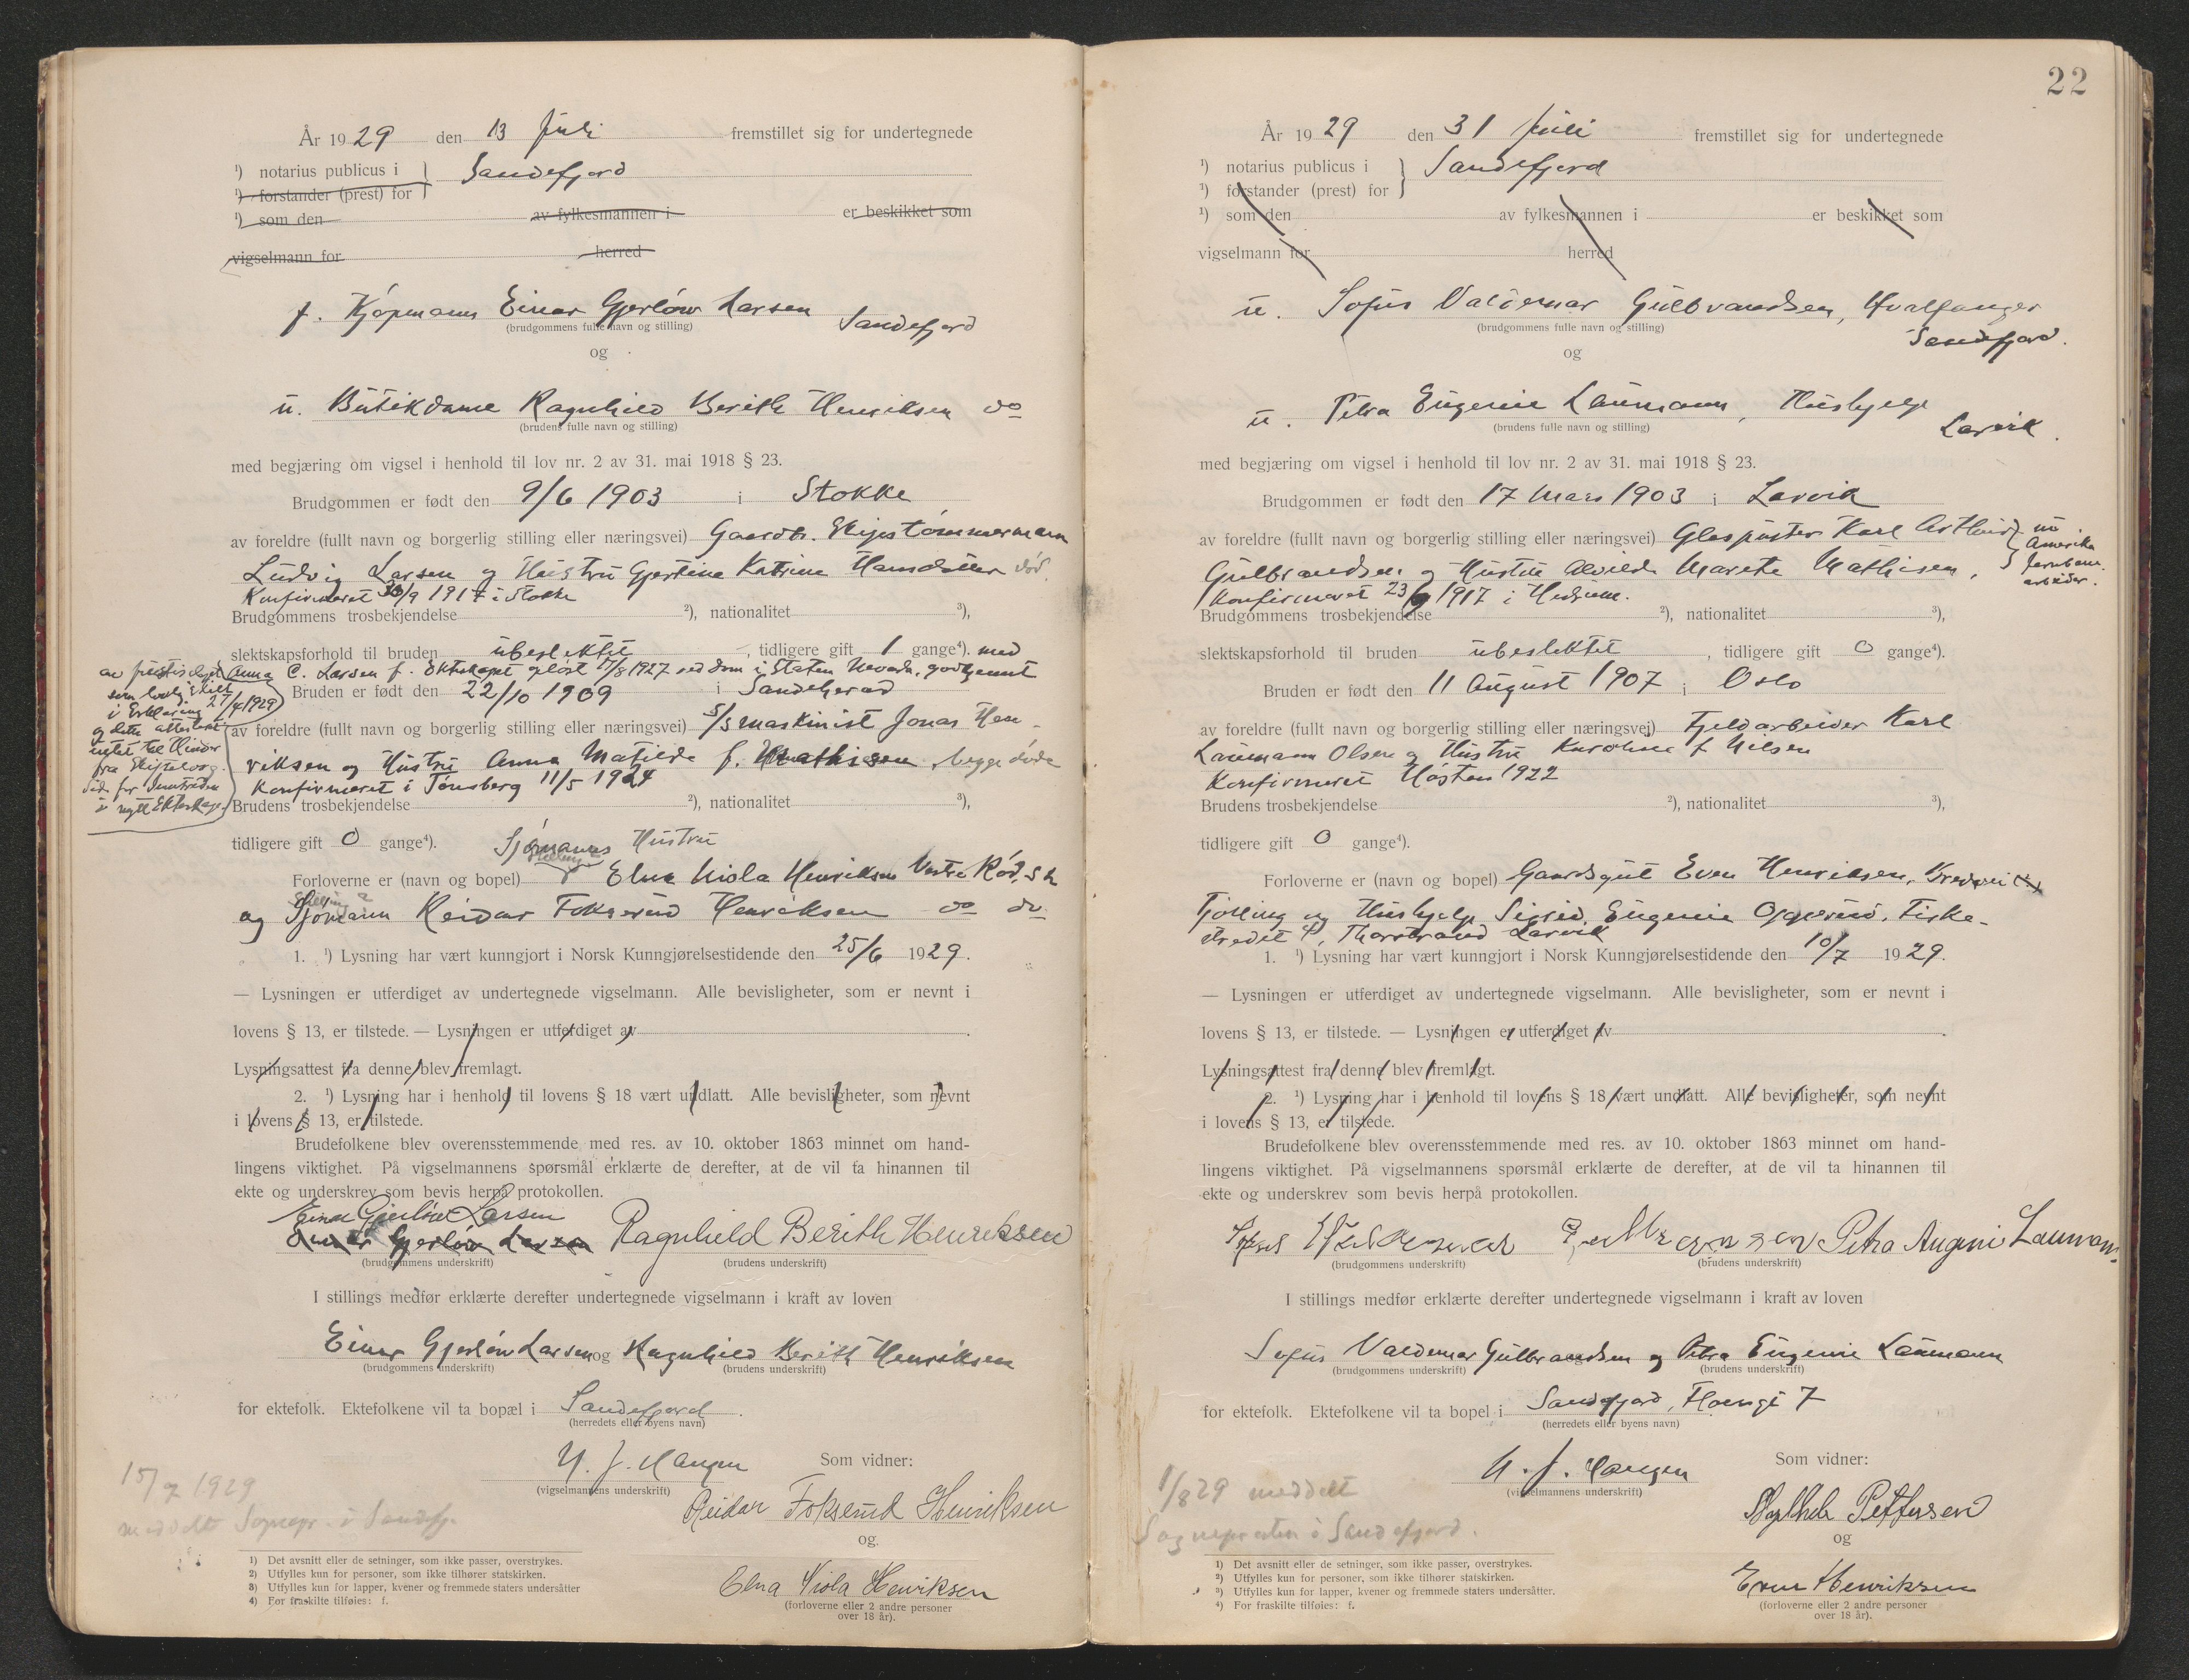 År 1929 den 13 Juli fremstillet sig for undertegnede
¹) notarius publicus i } Sandefjord
¹) forstander (prest) for
¹) som den av fylkesmannen i er beskikket som
vigselmann for herred
f. Kjøpmann Einar Gjerløw Larsen Sandefjord
(brudgommens fulle navn og stilling)
og
u. Butikdame Ragnhild Berith Henriksen do
(brudens fulle navn og stilling)
med begjæring om vigsel i henhold til lov nr. 2 av 31. mai 1918 § 23.
Brudgommen er født den 9/6 1903 i Stokke
av foreldre (fullt navn og borgerlig stilling eller næringsvei) Gaardbr. Skipstømmermann
Ludvig Larsen og Hustru Gjertine Katrine Hansdatter død.
Konfirmeret /9 1917 i Stokke
Brudgommens trosbekjendelse ²), nationalitet ³),
slektskapsforhold til bruden ubeslektet, tidligere gift 1 gange⁴). med
Anna C. Larsen f. Ekteskapet opløst 17/8 1927 ved dom i Staten Nevada, godkjennt
av justisdept.
som lovlig skilt
i Erklæring 27/4 1929
og dette attesteret
intet til Hinder
fra Skiftelovg.
side for Inntræden
i nytt Ekteskap.
Bruden er født den 22/10 1909 i Sandeherad
av foreldre (fullt navn og borgerlig stilling eller næringsvei) S/S maskinist Jonas Hen-
riksen og Hustru Anna Matilde f. Mathisen, begge døde
Konfirmeret i Tønsberg 11/5 1924
Brudens trosbekjendelse ²), nationalitet ³),
tidligere gift 0 gange⁴). Sjømanns Hustru
Forloverne er (navn og bopel) Elna Viola Henriksen Vestre Rød, S h
og Sjømann Reidar Fokserud Henriksen do do
1. ¹) Lysning har vært kunngjort i Norsk Kunngjørelsestidende den 25/6 1929.
— Lysningen er utferdiget av undertegnede vigselmann. Alle bevisligheter, som er nevnt i
lovens § 13, er tilstede. — Lysningen er utferdiget av
Lysningsattest fra denne blev fremlagt.
2. ¹) Lysning har i henhold til lovens § 18 vært undlatt. Alle bevisligheter, som nevnt
i lovens § 13, er tilstede.
Brudefolkene blev overensstemmende med res. av 10. oktober 1863 minnet om hand-
lingens viktighet. På vigselmannens spørsmål erklærte de derefter, at de vil ta hinannen til
ekte og underskrev som bevis herpå protokollen.
Einar Gjerløw Larsen
Einar Gjerløw Larsen Ragnhild Berith Henriksen
(brudgommens underskrift) (brudens underskrift)
I stillings medfør erklærte derefter undertegnede vigselmann i kraft av loven
Einar Gjerløw Larsen og Ragnhild Berith Henriksen
(brudgommens underskrift) (brudens underskrift)
for ektefolk. Ektefolkene vil ta bopæl i Sandefjord.
(herredets eller byens navn)
Som vidner:
(vigselmannens underskrift)
Reidar Fokserud Henriksen
og
Elna Viola Henriksen
(forloverne eller 2 andre personer
over 18 år).
15/7 1929
meddelt Sognepr. i Sandefj.
1) Det avsnitt eller de setninger, som ikke passer, overstrykes.
2) Utfylles kun for personer, som ikke tilhører statskirken.
3) Utfylles kun for lapper, kvener og fremmede staters undersåtter
4) For fraskilte tilføies: f.
22
År 1929 den 31 Juli fremstillet sig for undertegnede
¹) notarius publicus i } Sandefjord
¹) forstander (prest) for
¹) som den av fylkesmannen i er beskikket som
vigselmann for herred
u. Sofus Valdemar Gulbrandsen, Hvalfanger
Sandefjord.
(brudgommens fulle navn og stilling)
og
u. Petra Eugenie Laumann, Hushjelp
Larvik.
(brudens fulle navn og stilling)
med begjæring om vigsel i henhold til lov nr. 2 av 31. mai 1918 § 23.
Brudgommen er født den 17 Mars 1903 i Larvik
av foreldre (fullt navn og borgerlig stilling eller næringsvei) Glaspuster Karl Arthur
nu Amerika Jernbanearbeider.
Gulbrandsen og Hustru Alvilde Marete Mathisen,
Konfirmeret 23/9 1917 i Hedrum.
Brudgommens trosbekjendelse ²), nationalitet ³),
slektskapsforhold til bruden ubeslektet, tidligere gift 0 gange⁴).
Bruden er født den 11 August 1907 i Oslo
av foreldre (fullt navn og borgerlig stilling eller næringsvei) Fjeldarbeider Karl
Laumann Olsen og Hustru Karoline f Nelsen
Konfirmeret Høsten 1922
Brudens trosbekjendelse ²), nationalitet ³),
tidligere gift 0 gange⁴).
Forloverne er (navn og bopel) Gaardsgut Even Henriksen,
Tjølling og Hushjelp Sigrid Eugenie, Fiske-
stredet, Thorstrand Larvik
1. ¹) Lysning har vært kunngjort i Norsk Kunngjørelsestidende den 10/7 1929.
— Lysningen er utferdiget av undertegnede vigselmann. Alle bevisligheter, som er nevnt i
lovens § 13, er tilstede. — Lysningen er utferdiget av
Lysningsattest fra denne blev fremlagt.
2. ¹) Lysning har i henhold til lovens § 18 vært undlatt. Alle bevisligheter, som nevnt
i lovens § 13, er tilstede.
Brudefolkene blev overensstemmende med res. av 10. oktober 1863 minnet om hand-
lingens viktighet. På vigselmannens spørsmål erklærte de derefter, at de vil ta hinannen til
ekte og underskrev som bevis herpå protokollen.
Petra Augeni Lauman
(brudgommens underskrift) (brudens underskrift)
I stillings medfør erklærte derefter undertegnede vigselmann i kraft av loven
Sofus Valdemar Gulbrandsen og Petra Eugenie Laumann
(brudgommens underskrift) (brudens underskrift)
for ektefolk. Ektefolkene vil ta bopel i Sandefjord, 7
(herredets eller byens navn)
Som vidner:
(vigselmannens underskrift)
Pettersen
og
Even Henriksen
(forloverne eller 2 andre personer
over 18 år).
1/8 29 meddelt
Sognepresten i Sandefjord.
1) Det avsnitt eller de setninger, som ikke passer, overstrykes.
2) Utfylles kun for personer, som ikke tilhører statskirken.
3) Utfylles kun for lapper, kvener og fremmede staters undersåtter.
4) For fraskilte tilføies: f.